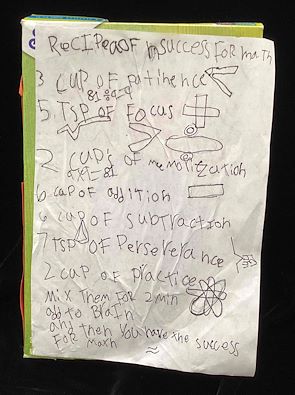 RecIPe OF success FOR math
3 cup OF patinence
5 TSP OF Focus
2 cup's of memotization
6 cup OF addition
6 cup OF subtraction
7 TSP OF Perseverance
2 cup OF practice
mix Them FOR 2 min
add to Brain
and then You have the success
For math